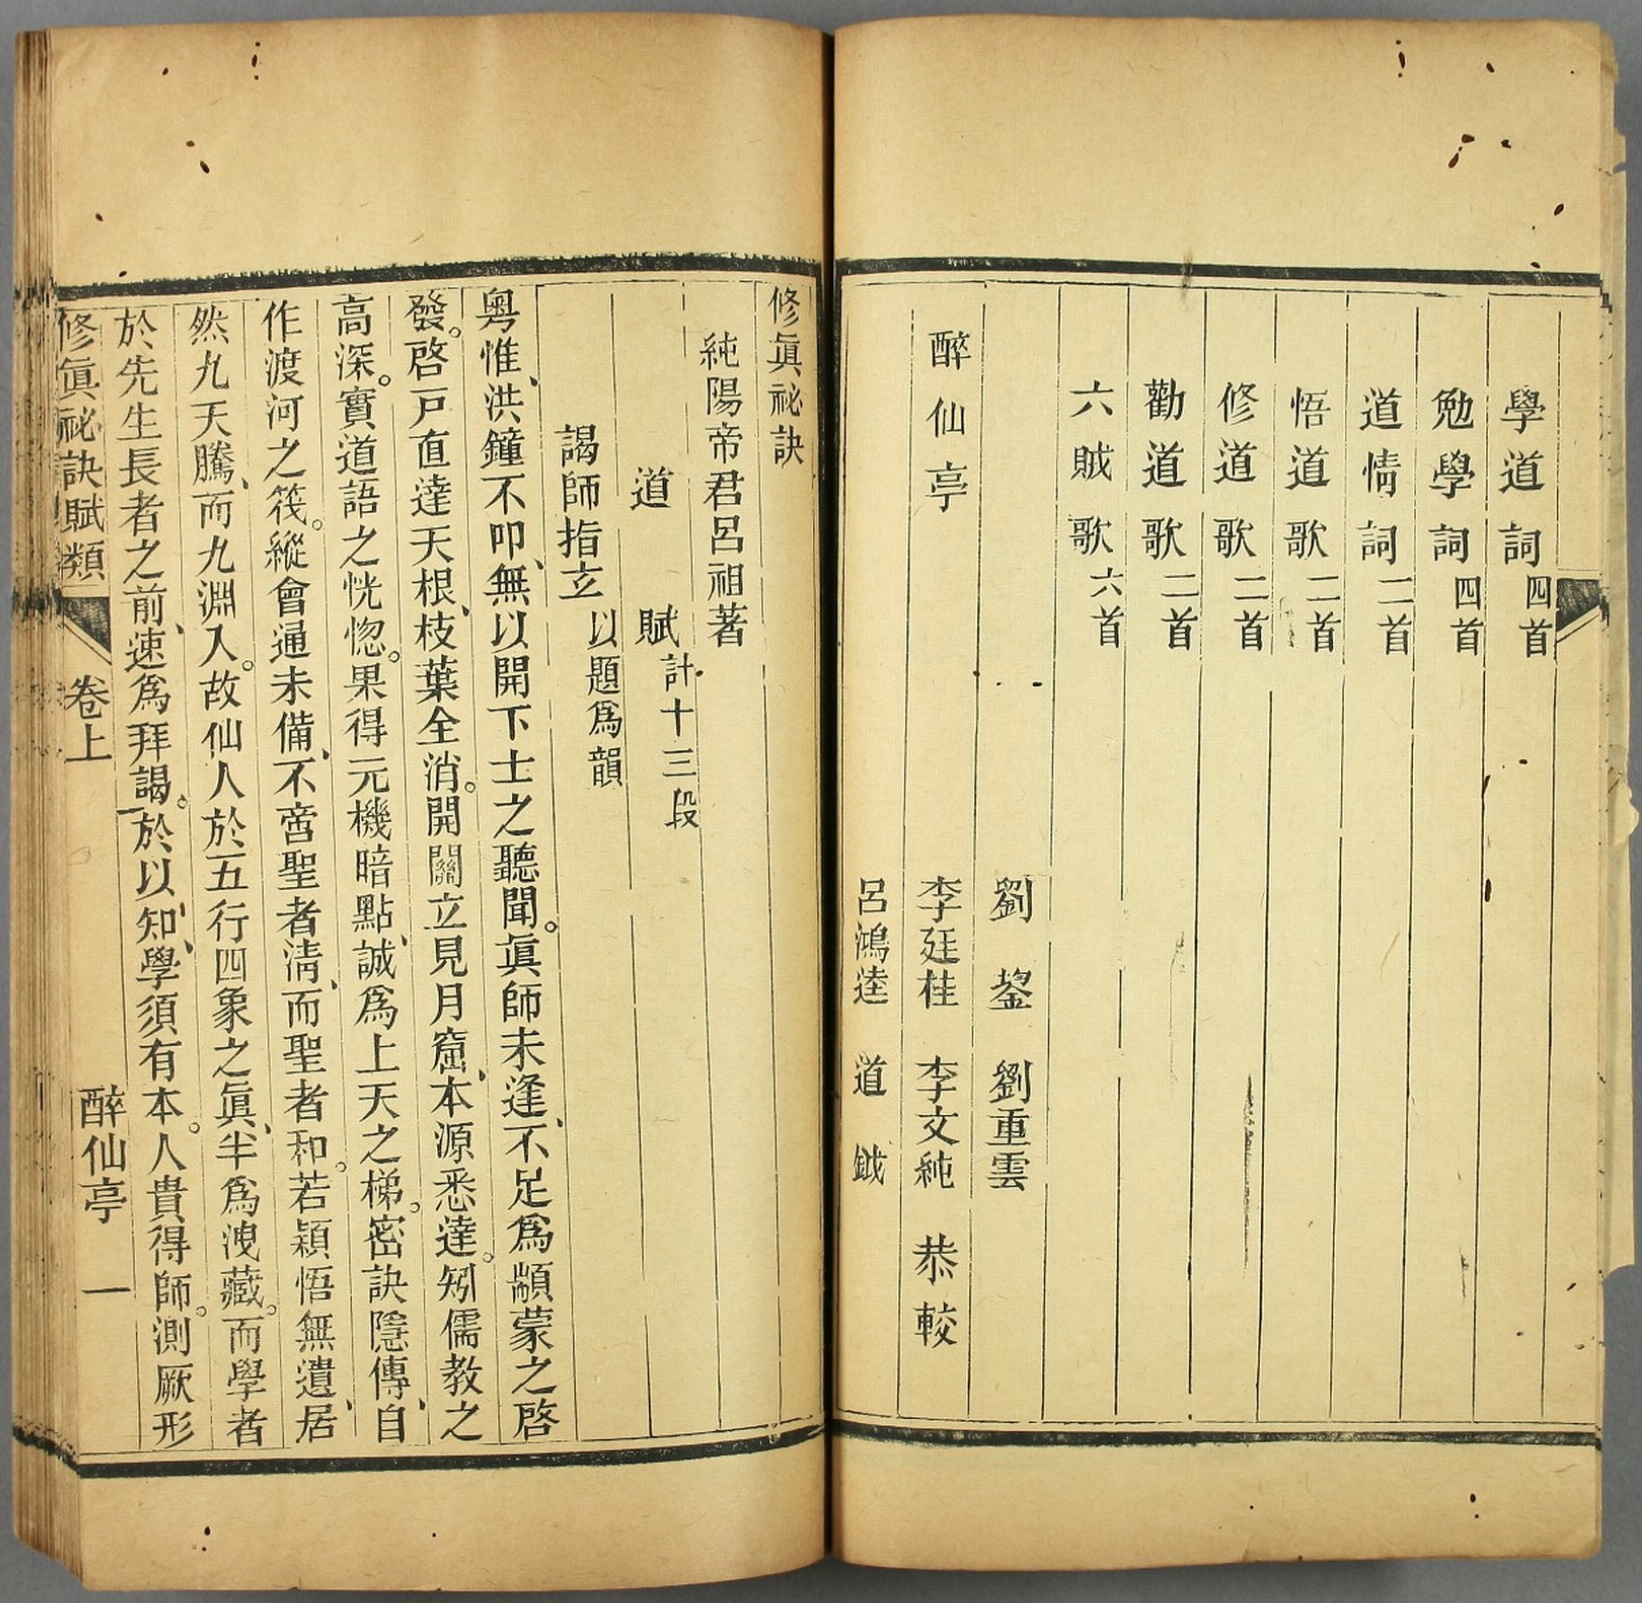 學道詞四首
勉學詞四首
道情詞二首
悟道歌二首
修道歌二首
勸道歌二首
六賊歌六首
劉 鋆 劉重雲
醉仙亭 李廷桂 李文純 恭較
呂鴻逵 道 鉞
修眞祕訣
純陽帝君呂祖著
道 賦計十三段
謁師指立以題爲韻
粤惟、洪鐘不叩、無以開下士之聽聞。眞師未逢、不足爲顓蒙之啓
發。啓戸直達天根、枝葉全消。開關立見月窟、本源悉達。矧儒教之
高深。實道語之恍惚。果得元機暗點、誠爲上天之梯。密訣隱傳、自
作渡河之筏。縱會通未備、不啻聖者淸、而聖者和。若穎悟無遺、居
然九天騰、而九淵入。故仙人於五行四象之眞、半爲洩藏。而學者
於先生長者之前、速爲拜謁。於以知、學須有本。人貴得師。測厥形
修眞祕訣賦類 卷上 醉仙亭 一